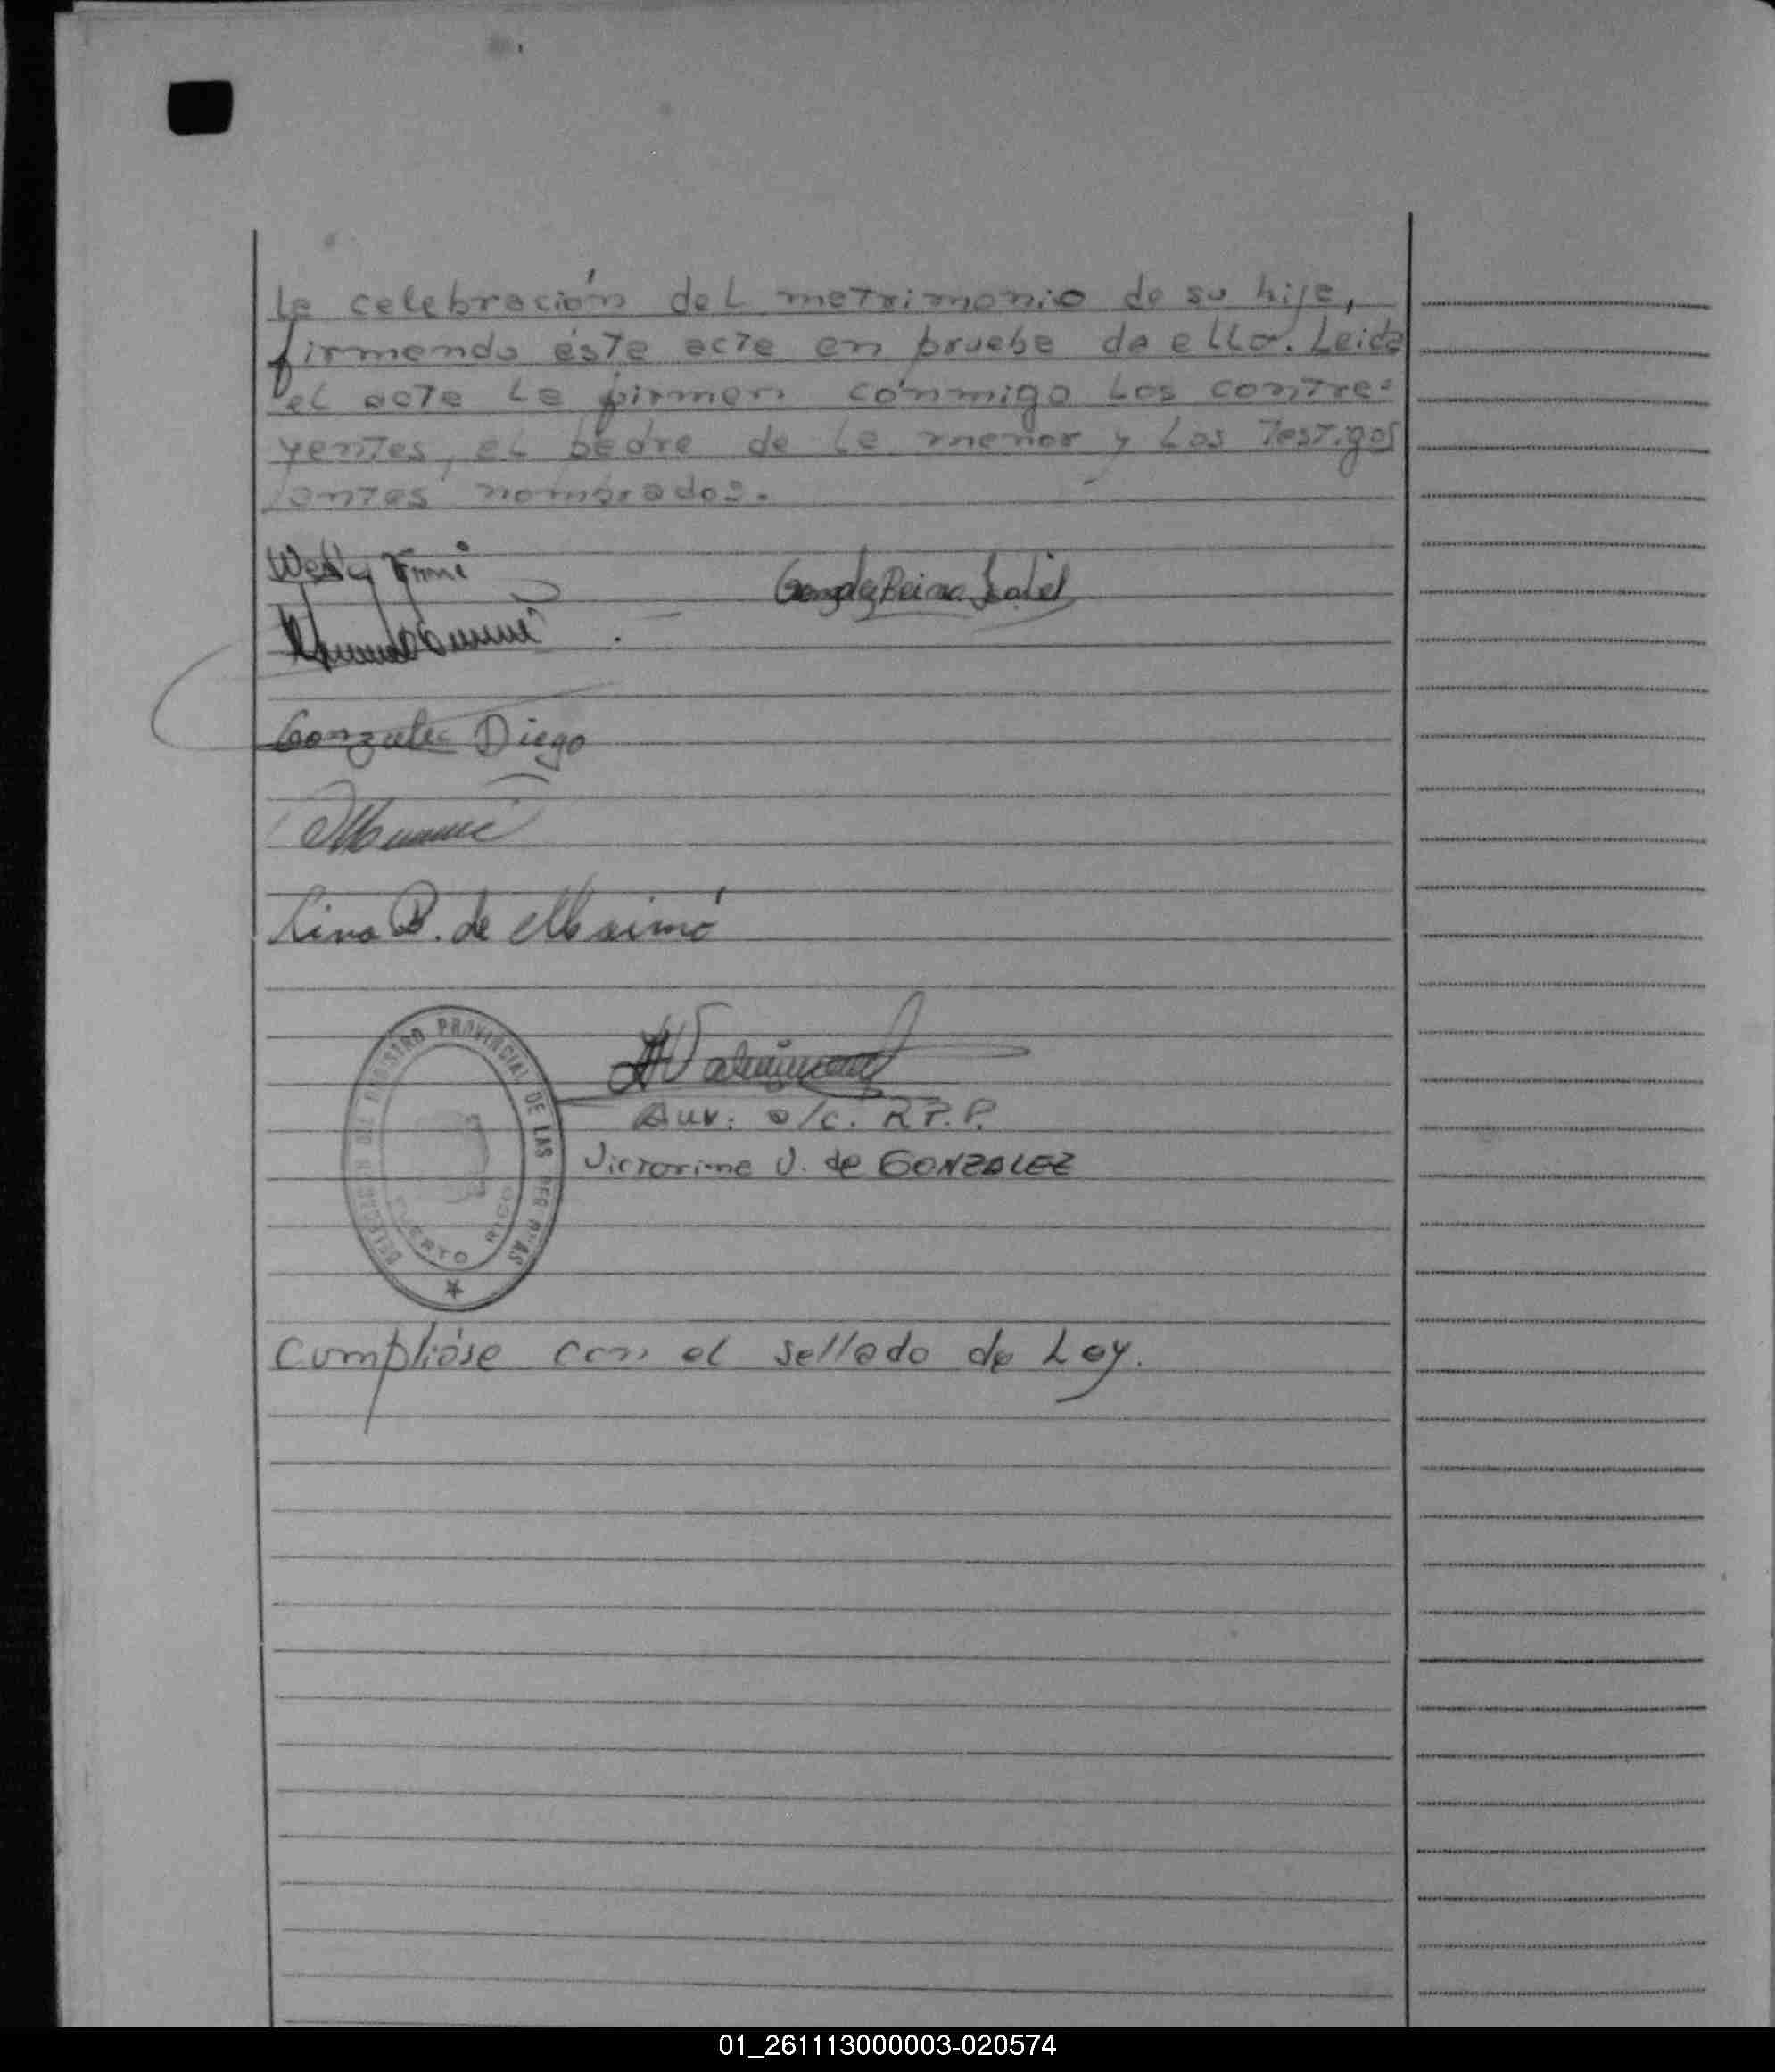 la celebración del matrimonio de su hija,
firmando éste acta en prueba de ello. Leida
el acta la firman conmigo los contra=
yentes, el padre de la menor y los Testigos
antes nombrados.
Gonzalez Reina Isabel
Gonzalez Diego
Lina B. de
DELEGACION DEL REGISTRO PROVINCIAL DE LAS PERSONAS
PUERTO RICO
Aux. a/c. R.P.P.
Victorina V. de GONZALEZ
Cumplióse con el sellado de Ley.
01_261113000003-020574